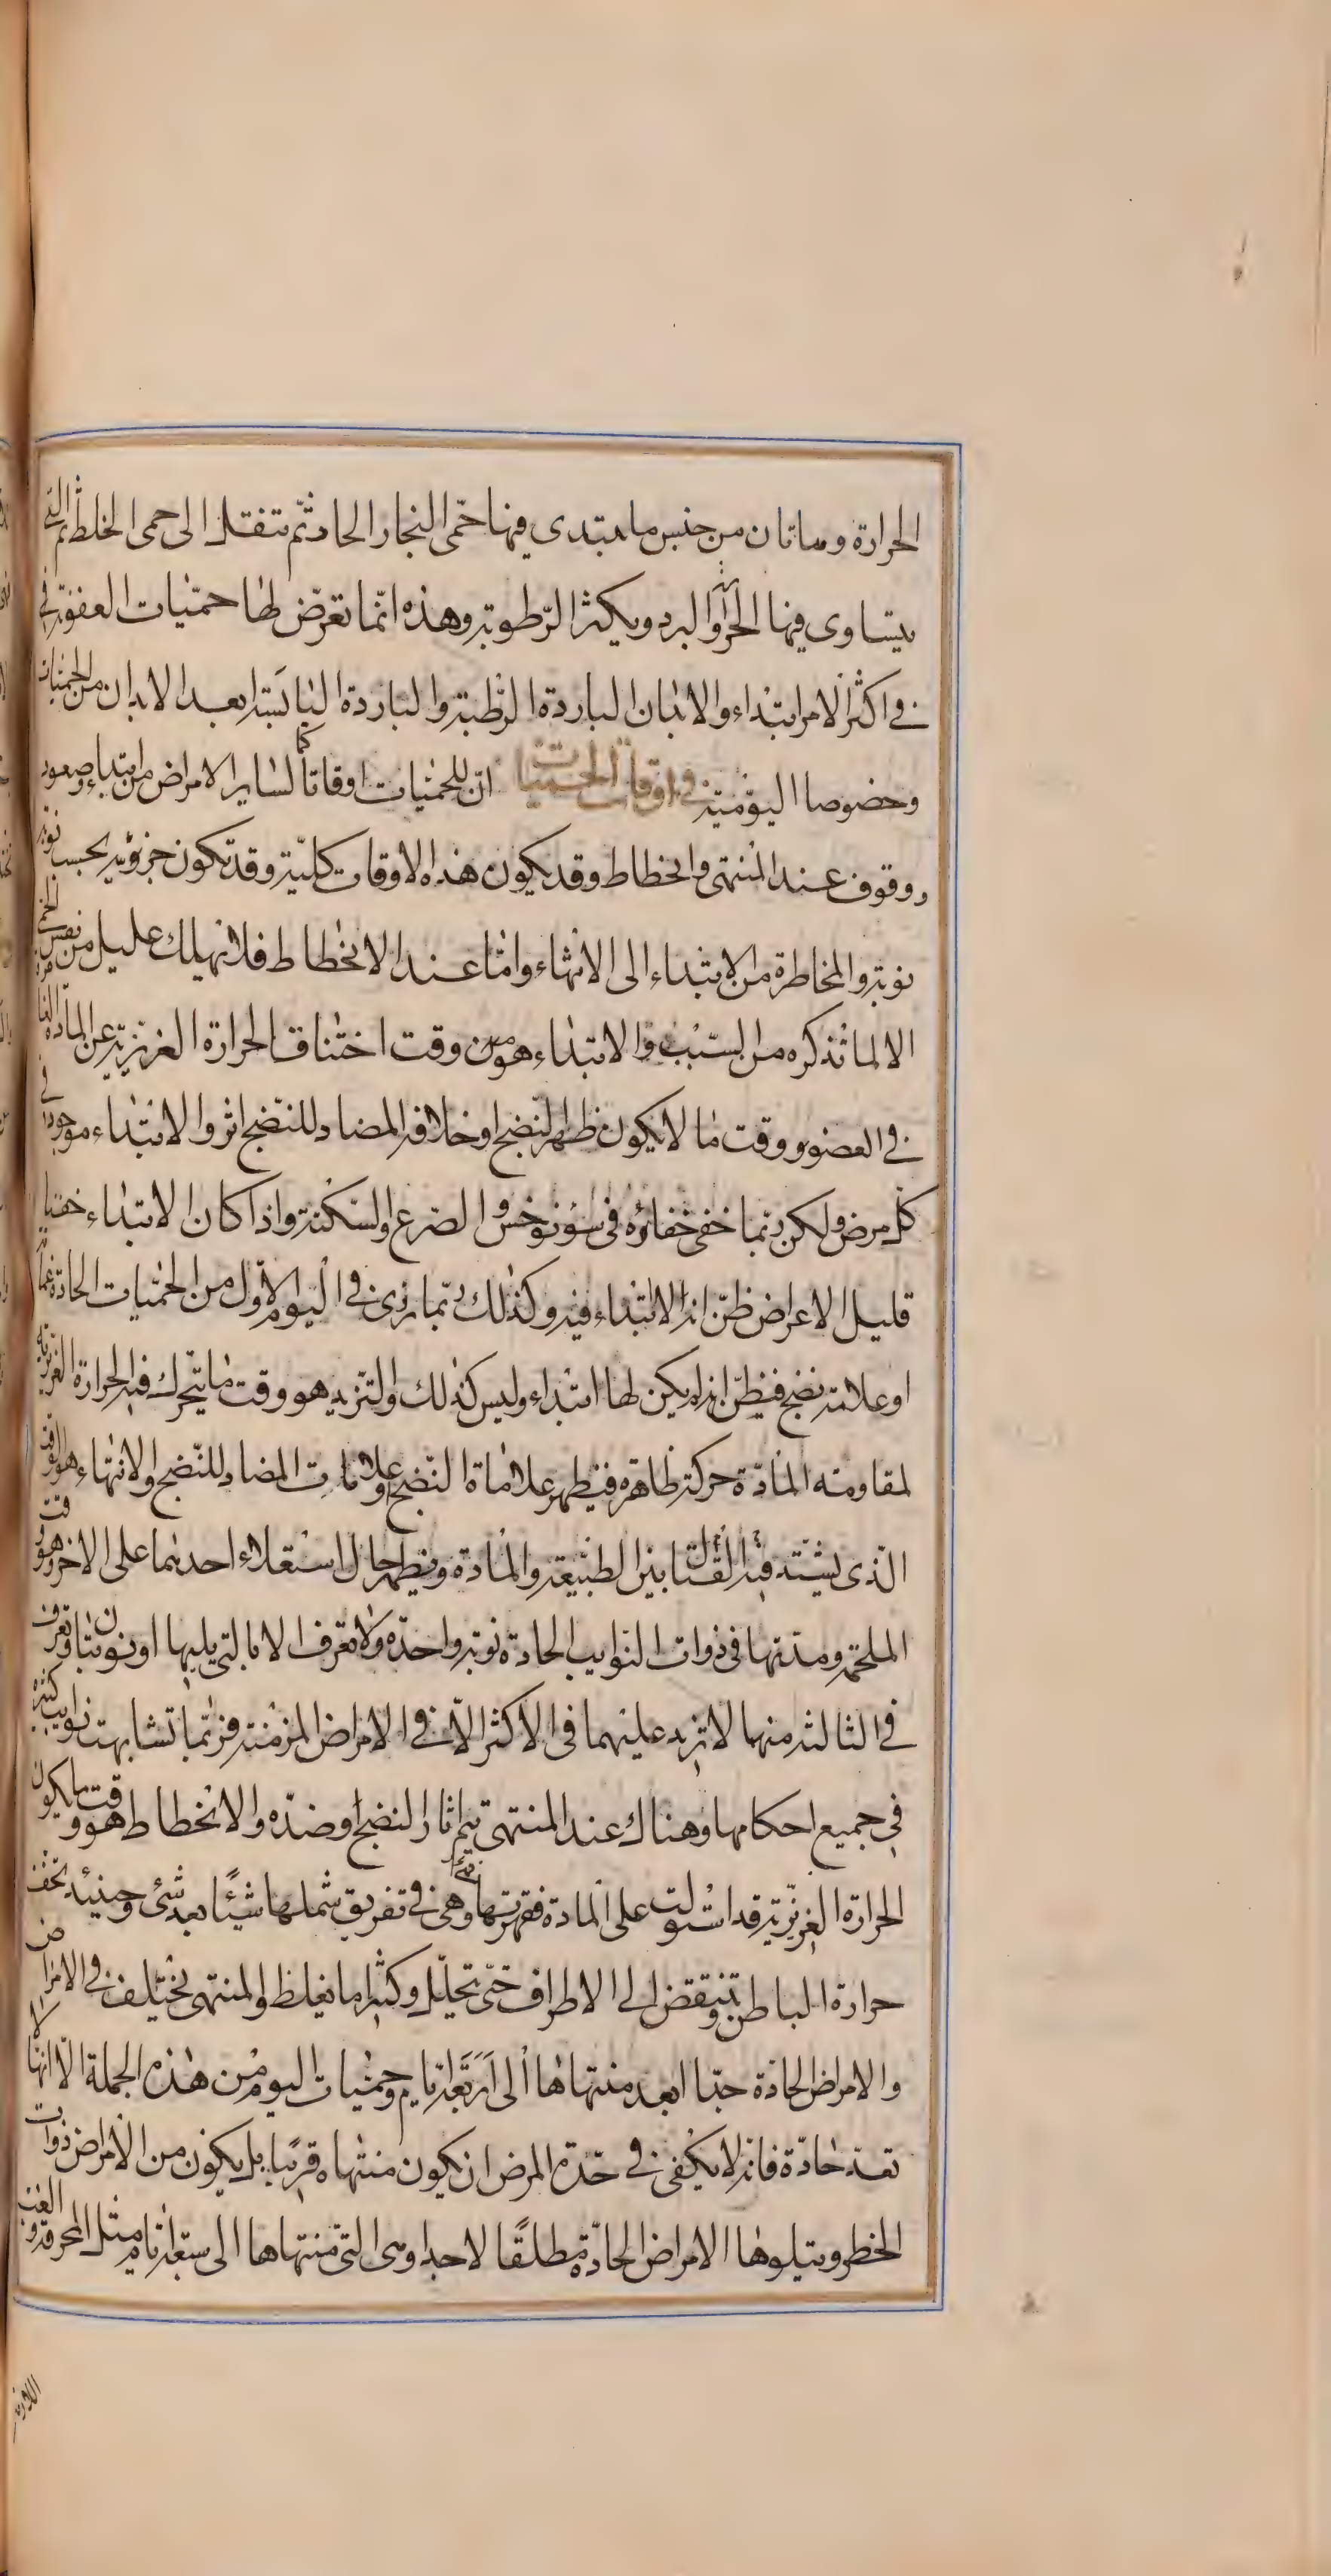 الحرارة وماتان من جنس ما يبتدى فيها حمى البخار الحاد ثم تنتقل الى حمى الخلط ثم التى
يتساوى فيها الحر والبرد ويكثر الرطوبة وهذه انما تعرض لها حميات العفونة فى
فى اكثر الامر ابتداء والابدان الباردة الرطبة والباردة اليابسة ابعد الابدان من الحميات
وخصوصا اليومية فى اوقات الحميات ان للحميات اوقاتا كما لساير الامراض من ابتداء وصعود
ووقوف عند المنتهى وانحطاط وقد يكون هذه الاوقات كلية وقد تكون جزؤية بحسب نوبة
نوبة والمخاطرة من الابتداء الى الانتهاء واما عند الانحطاط فلا يهلك عليل من نفس الحمى
الا لما نذكره من السبب والابتداء هو وقت اختناق الحرارة الغريزية عن المادة
فى العضو ووقت ما لا يكون ظهر لنضج او خلافه المضاد للنضج اثر والابتداء موجود فى
كل مرض ولكن ربما خفى خفاؤه فى سونوخس والصرع والسكتة واذا كان الابتداء خفيا
قليل الاعراض ظن انه لا ابتداء فيه وكذلك ربما رى فى اليوم الاول من الحميات الحادة غمامة
او علامة نضج فيظن انه لم يكن لها ابتداء وليس كذلك والتزيد هو وقت ما يتحرك فيه الحرارة الغريزية
لمقاومة المادة حركة ظاهرة فيظهر علاماة النضج وعلامات المضاد للنضج والانتهاء هو الوقت
الذى يشتد فيه القتال بين الطبيعة والمادة ويظهر حال استعلاء احديهما على الاخر وهو
الملحمة ومدتها فى ذوات النوايب الحادة نوبة واحدة ولا تعرف الا بالتى يليها او نوبتان وتعرف
فى الثالثة منهما لا تزيد عليهما فى الاكثر الا فى الامراض المزمنة فربما تشابهت نوايب كثيرة
فى جميع احكامها وهناك عند المنتهى تتم اثار النضج او ضده والانحطاط هو وقت ما يكون
الحرارة الغريزية قد استولت على المادة فقهرتها وهى فى تفريق شملها شيئا بعد شئ وحينئذ تخف
حرارة الباطن وتنتقض الى الاطراف حتى تحلل وكثيرا ما تغلظ والمنتهى يختلف فى الامراض
والامراض الحادة جدا ابعد منتهاها الى اربعة ايام وحميات اليوم من هذه الجملة الا انها لا
تعد حادة فانه لا يكفى فى حدة المرض ان يكون منتهاه قريبا بل يكون من الامراض ذوات
الخطر ويتلوها الامراض الحادة مطلقا لا جدا وهى التى منتهاها الى سبعة ايام مثل المحرقة والغب
اللازمة